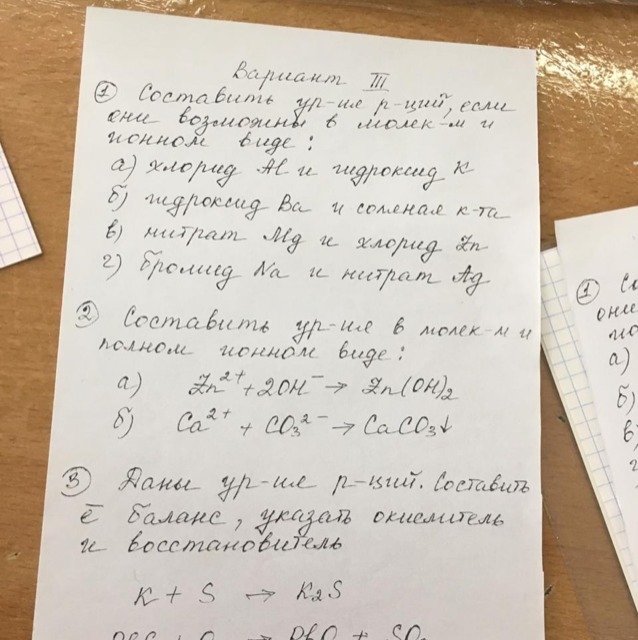 Вариант III
① Составить ур-ия р-ций, если
они возможны в молек-м и
ионном виде:
а) хлорид Al и гидроксид K
б) гидроксид Ba и соляная к-та
в) нитрат Mg и хлорид Zn
г) бромид Na и нитрат Ag
② Составить ур-ия в молек-м и
полном ионном виде:
а) Zn²⁺ + 2OH⁻ → Zn(OH)₂
б) Ca²⁺ + CO₃²⁻ → CaCO₃↓
③ Даны ур-ия р-ций. Составить
ē баланс, указать окислитель
и восстановитель
K + S → K₂S
①
они
а)
б)
в)